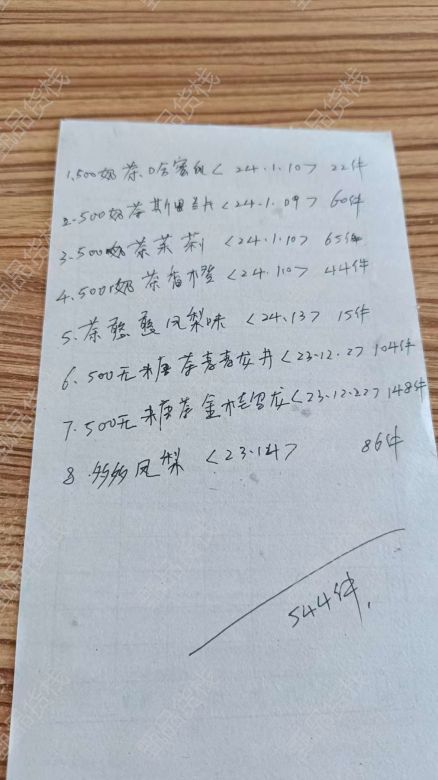 1.500奶茶.哈蜜瓜<24.1.10> 22件
2.500奶茶斯里兰卡<24.1.09> 60件
3.500奶茶茉莉<24.1.10> 65件
4.500奶茶香橙<24.1.10> 44件
5.茶憨憨凤梨味<24.1.3> 15件
6.500无糖茶青青龙井<23.12.2> 104件
7.500无糖茶金桂乌龙<23.12.22> 148件
8.多多凤梨<23.14> 86件
544件.